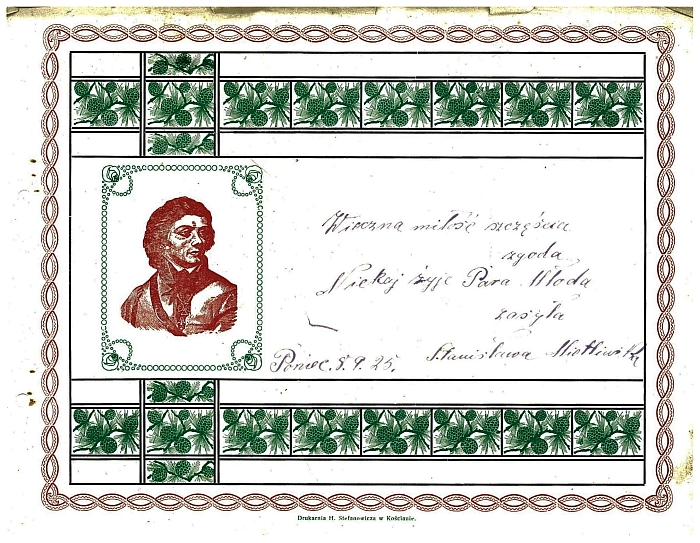 Wieczna miłość szczęścia
zgoda
Niehaj żyje Para Młoda
zasyła
Poniec. 5.9.25. Stanisława
Drukarnia H. Stefanowicza w Kościanie.